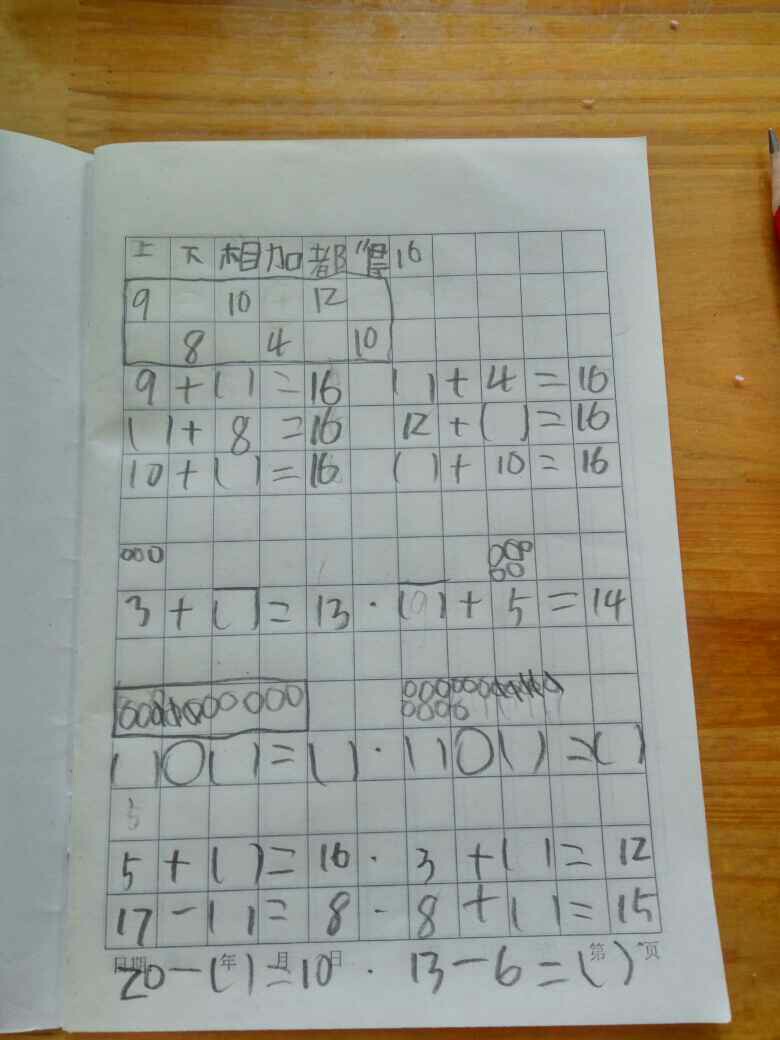 上下相加都得16
9 10 12
8 4 10
9+( )=16 ( )+4=16
( )+8=16 12+( )=16
10+( )=16 ( )+10=16
3+( )=13 · (0)+5=14
( )○( )=( ) · ( )○( )=( )
5
5+( )=16 · 3+( )=12
17-( )=8 · 8+( )=15
日期 年 月 日 第 页
20-( )=10 · 13-6=( )